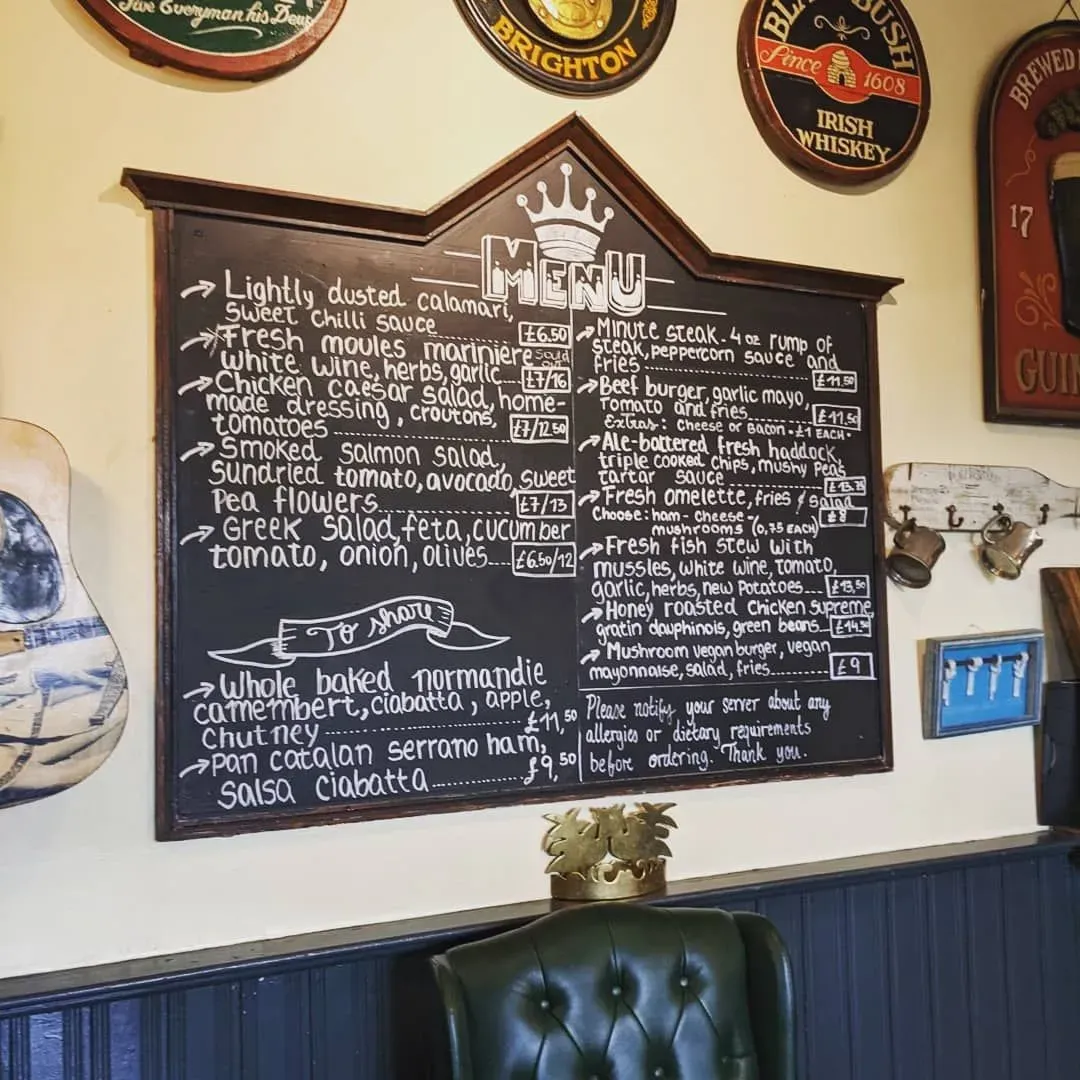 Give Everyman his Due
BRIGHTON
BLACK BUSH
Since 1608
IRISH
WHISKEY
BREWED
17
GUIN
MENU
Lightly dusted calamari,
sweet chilli sauce £6.50
Fresh moules marinière sould out
white wine, herbs, garlic... £7/16
Chicken caesar salad, home-
made dressing, croutons,
tomatoes £7/12.50
Smoked salmon salad,
sundried tomato, avocado, sweet
pea flowers £7/13
Greek salad, feta, cucumber
tomato, onion, olives.... £6.50/12
To share
Whole baked normandie
camembert, ciabatta, apple,
chutney £11,50
Pan catalan serrano ham,
salsa ciabatta £9,50
Minute steak - 4 oz rump of
steak, peppercorn sauce and
fries £11.50
Beef burger, garlic mayo,
tomato and fries £11.50
Extras: cheese or bacon - £1 EACH -
Ale-battered fresh haddock,
triple cooked chips, mushy peas
tartar sauce £13.75
Fresh omelette, fries & salad
Choose: ham - cheese - £8
mushrooms (0,75 EACH)
Fresh fish stew with
mussles, white wine, tomato,
garlic, herbs, new potatoes... £13,50
Honey roasted chicken supreme,
gratin dauphinois, green beans... £14.50
Mushroom vegan burger, vegan
mayonnaise, salad, fries £9
Please notify your server about any
allergies or dietary requirements
before ordering. Thank you.